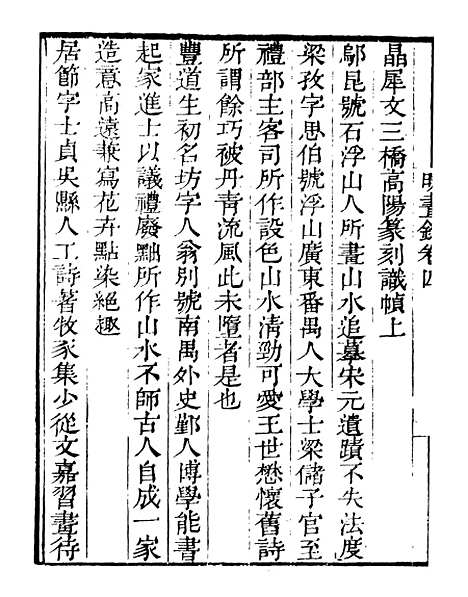 明畫錄卷四
晶犀文三橋高陽篆刻識幀上
鄔昆號石浮山人所畫山水追摹宋元遺蹟不失法度
梁孜字思伯號浮山廣東番禺人大學士梁儲子官至
禮部主客司所作設色山水清勁可愛王世懋懷舊詩
所謂餘巧被丹青流風此未墮者是也
豐道生初名坊字人翁別號南禺外史鄞人博學能書
起家進士以議禮廢黜所作山水不師古人自成一家
造意高遠兼寫花卉點染絕趣
居節字士貞吳縣人工詩著牧豕集少從文嘉習畫待